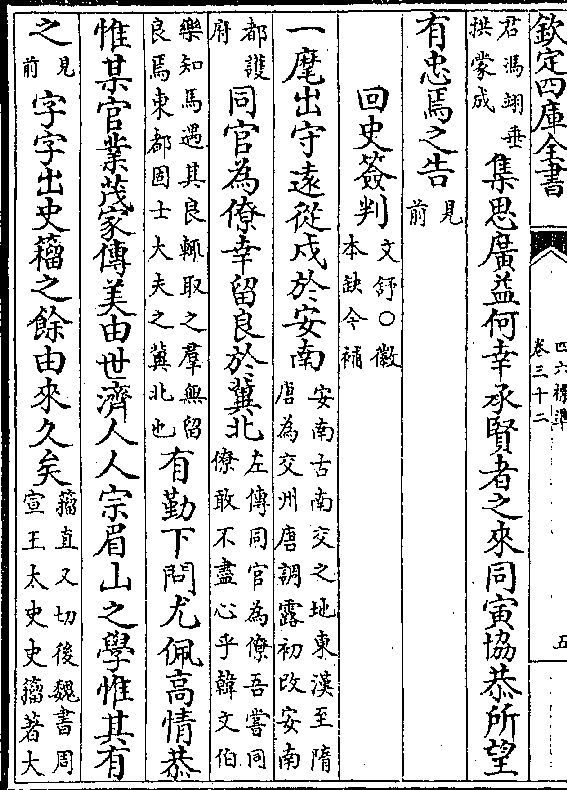 欽定四庫全書
四六標準
卷三十二
五
君馮翊垂
拱蒙成
集思廣益何幸承賢者之來同寅協恭所望
有忠焉之告
見
前
回史簽判
文舒○徽
本缺今補
一麾出守遠從戍於安南
安南古南交之地東漢至隋
唐為交州唐調露初改安南
都護
府
同官為僚幸留良於冀北
左傳同官為僚吾嘗同
僚敢不盡心乎韓文伯
樂知馬遇其良輒取之羣無留
良焉東都固士大夫之冀北也
有勤下問尤佩高情恭
惟某官業茂家傳美由世濟人人宗眉山之學惟其有
之
見
前
字字出史籀之餘由來久矣
籀直又切後魏書周
宣王太史史籀著大